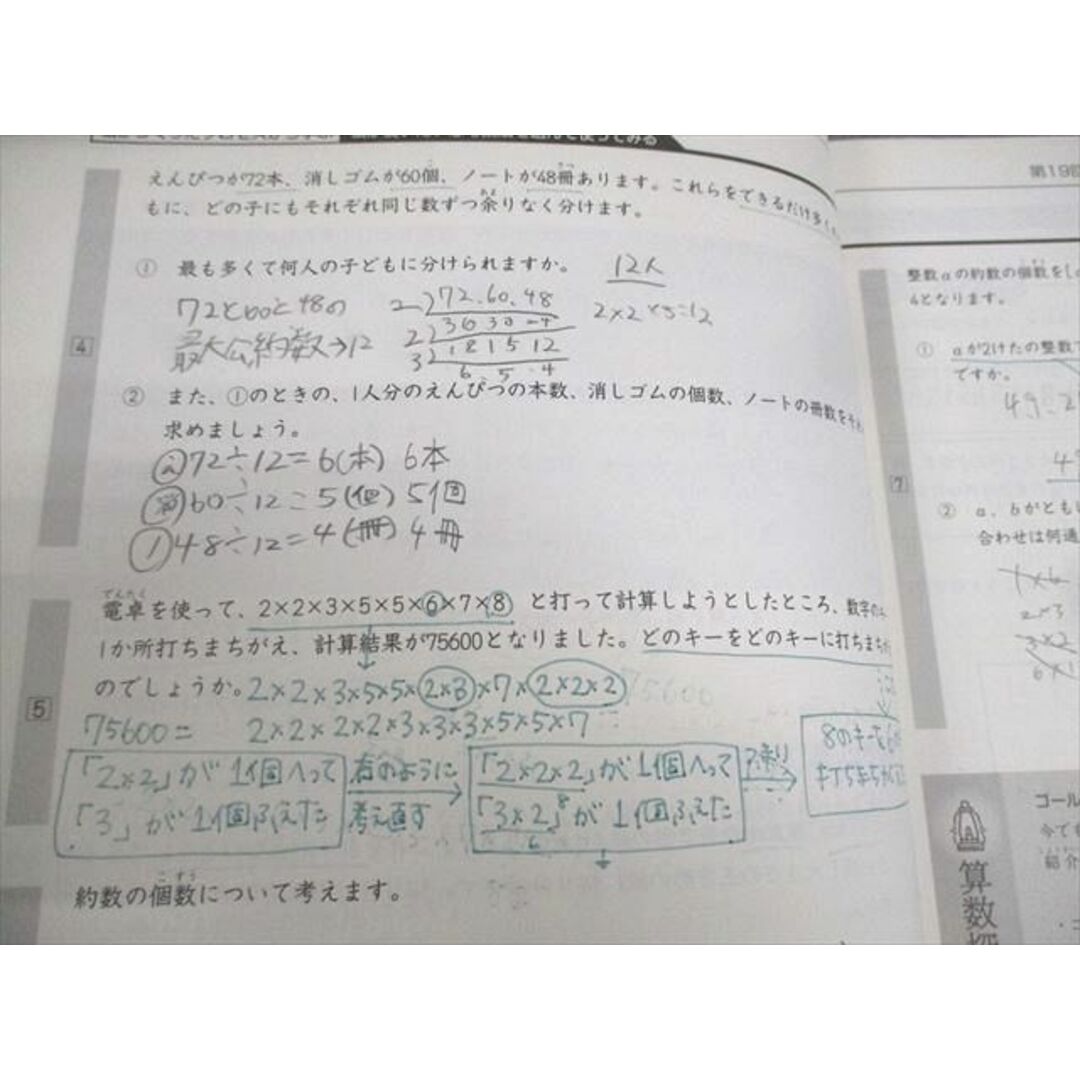 えんぴつが72本、消しゴムが60個、ノートが48冊あります。これらをできるだけ多く
もに、どの子にもそれぞれ同じ数ずつ余りなく分けます。
① 最も多くて何人の子どもに分けられますか。 12人
72と60と48の
最大公約数→12
2)72.60.48
2)36 30 24
3)18 15 12
6 5 4
2×2×3=12
4
② また、①のときの、1人分のえんぴつの本数、消しゴムの個数、ノートの冊数をそれ
求めましょう。
72÷12=6(本) 6本
60÷12=5(個) 5個
48÷12=4(冊) 4冊
電卓を使って、2×2×3×5×5×6×7×8 と打って計算しようとしたところ、数字の
1か所打ちまちがえ、計算結果が75600となりました。どのキーをどのキーに打ちまちが
のでしょうか。2×2×3×5×5×(2×3)×7×(2×2×2)
75600
5
75600= 2×2×2×2×3×3×3×5×5×7
「2×2」が1個へって
「3」が1個ふえた
右のように
考え直す
「2×2×2」が1個へって
8
「3×2」が1個ふえた
6
8のキーを6
打ちまちがえ
約数の個数について考えます。
第19回
整数aの約数の個数を
4となります。
① aが2けたの整数で
ですか。
7
② a、bがともに
合わせは何通
1×6
2×3
3×2
6×1
算数
ゴール
今で
紹介